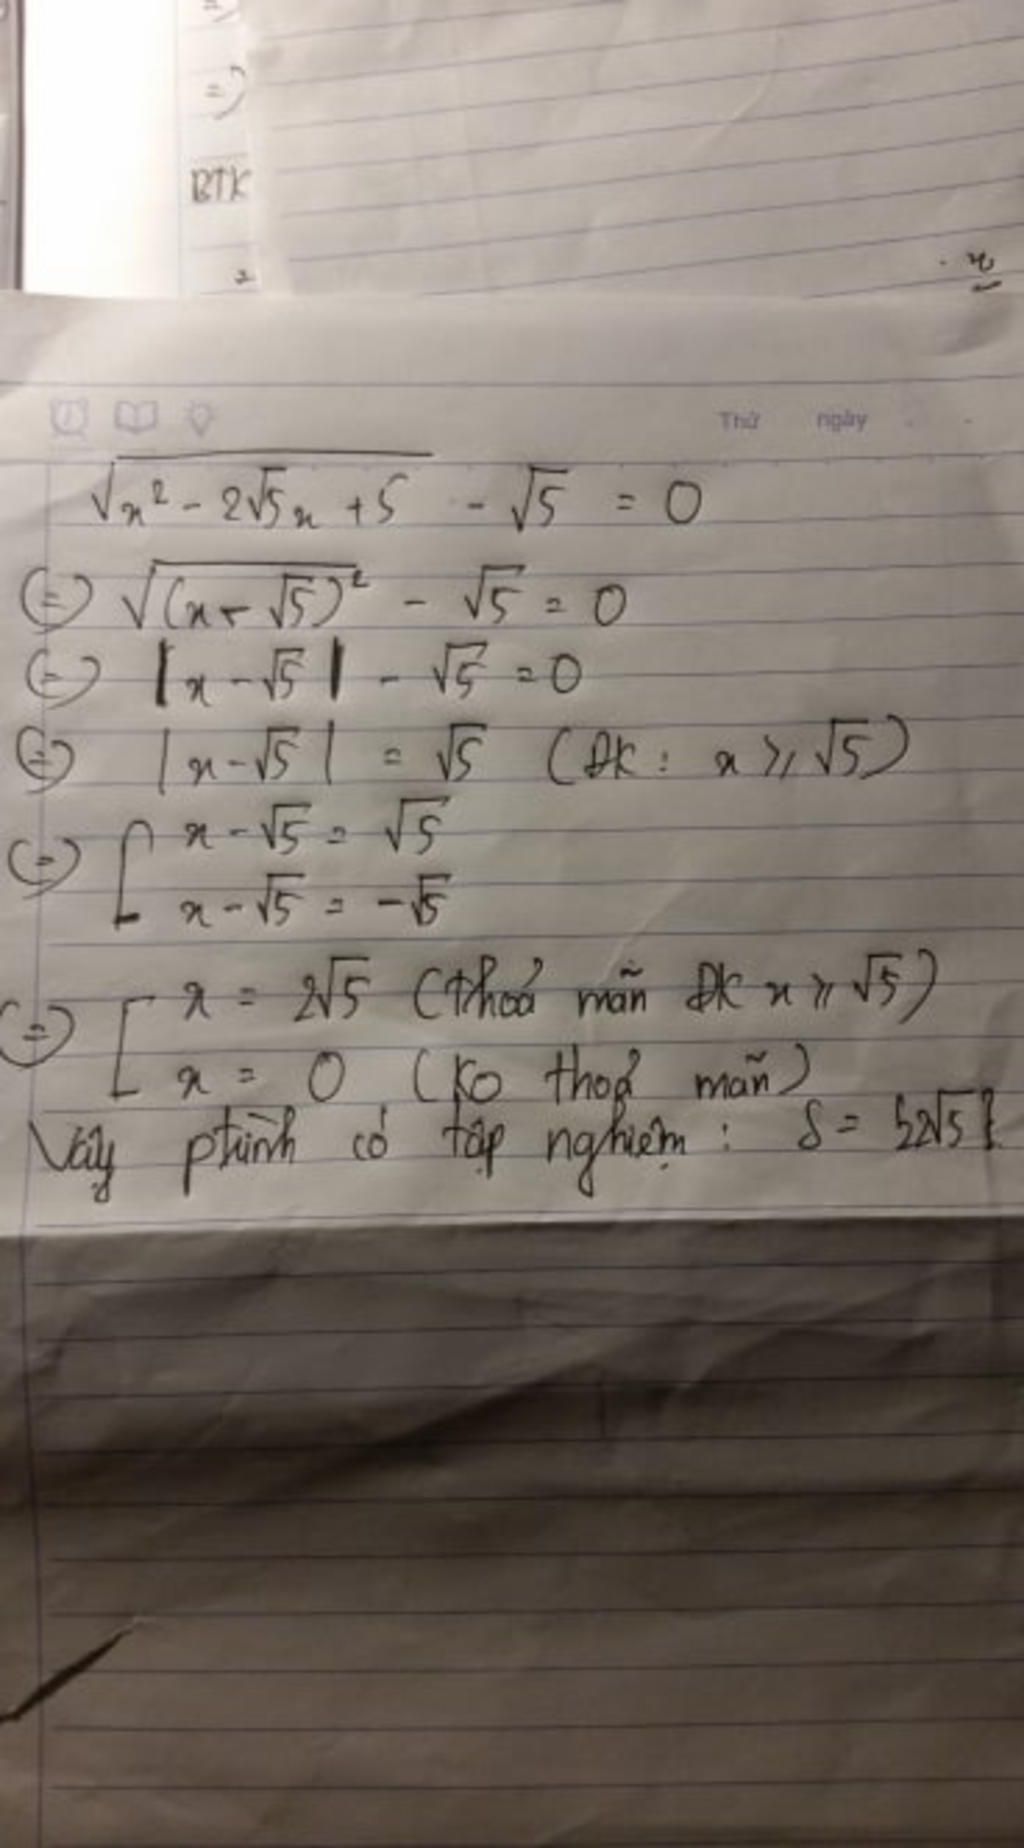 =)
BTK
=
Thứ ngày
√(x² - 2√5x + 5) - √5 = 0
(=) √((x - √5)²) - √5 = 0
(=) |x - √5| - √5 = 0
(=) |x - √5| = √5 (ĐK: x ≥ √5)
(=) [ x - √5 = √5
x - √5 = -√5
(=) [ x = 2√5 (thoả mãn ĐK x ≥ √5)
x = 0 (Ko thoả mãn)
Vậy ptrình có tập nghiệm : S = {2√5}.